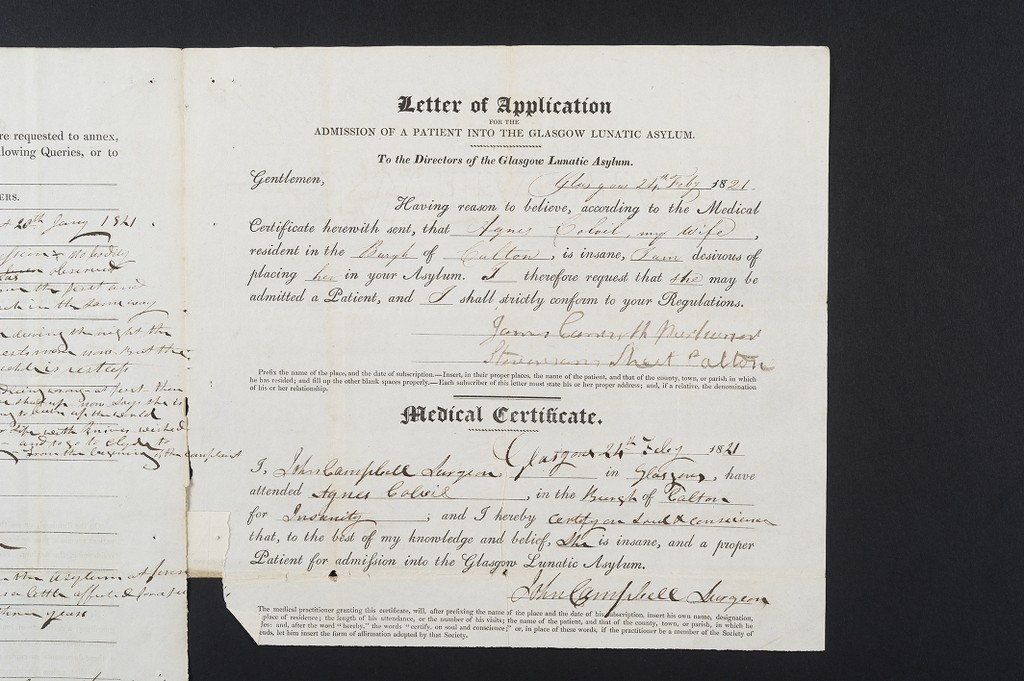 re requested to annex,
lowing Queries, or to
ERS.
20th Jany 1821
nobody
observed
the past and
in the same way
during the night the
now But the
is restless
at first then
now says she is
up the world
life with knives wished
and to go to Clyde to
from the beginning of the complaint
the asylum at
a little affected for a
three years
Letter of Application
FOR THE
ADMISSION OF A PATIENT INTO THE GLASGOW LUNATIC ASYLUM.
To the Directors of the Glasgow Lunatic Asylum.
Gentlemen,
Glasgow 24th Feby 1821.
Having reason to believe, according to the Medical
Certificate herewith sent, that Agnes Colvil, my Wife,
resident in the Burgh of Calton, is insane, I am desirous of
placing her in your Asylum. I therefore request that she may be
admitted a Patient, and I shall strictly conform to your Regulations.
James
Stevenson Street Calton
Prefix the name of the place, and the date of subscription.—Insert, in their proper places, the name of the patient, and that of the county, town, or parish in which
he has resided; and fill up the other blank spaces properly.—Each subscriber of this letter must state his or her proper address; and, if a relative, the denomination
of his or her relationship.
Medical Certificate.
Glasgow 24th Feby 1821
I, John Campbell Surgeon in Glasgow, have
attended Agnes Colvil, in the Burgh of Calton
for Insanity; and I hereby certify on Soul & conscience
that, to the best of my knowledge and belief, She is insane, and a proper
Patient for admiſsion into the Glasgow Lunatic Asylum.
John Campbell Surgeon
The medical practitioner granting this certificate, will, after prefixing the name of the place and the date of his subscription, insert his own name, designation,
place of residence; the length of his attendance, or the number of his visits; the name of the patient, and that of the county, town, or parish, in which he
des: and, after the word "hereby," the words "certify, on soul and conscience;" or, in place of these words, if the practitioner be a member of the Society of
ends, let him insert the form of affirmation adopted by that Society.